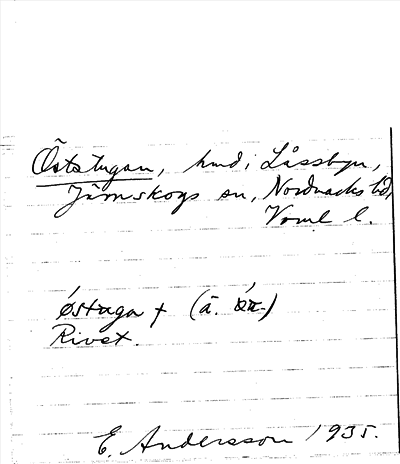 Öststugan, hmd i Låssbyn,
Järnskogs sn, Nordmarks hd,
Vrml l.
østuga + (ä.
Rivet.
E. Andersson 1935.